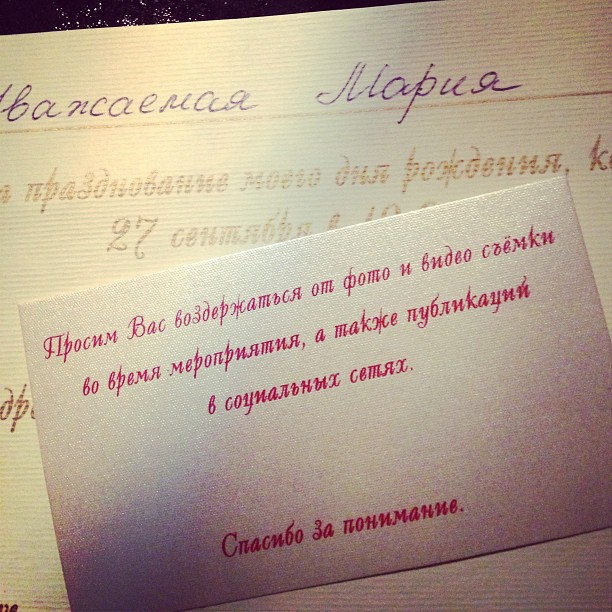 Уважаемая Мария
празднование моего дня рождения,
27 сентября в
Просим Вас воздержаться от фото и видео съёмки
во время мероприятия, а также публикаций
в социальных сетях.
Спасибо за понимание.